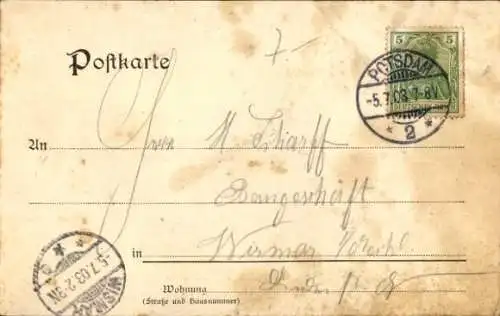 7-
5 5
POTSDAM
-5.7.03.7-8V.
* 2 *
Postkarte
An Herrn H. Scharff
Baugeschäft
in Wismar
-5.7.03.2-3N
WISMAR
Wohnung
(Straße und Hausnummer)